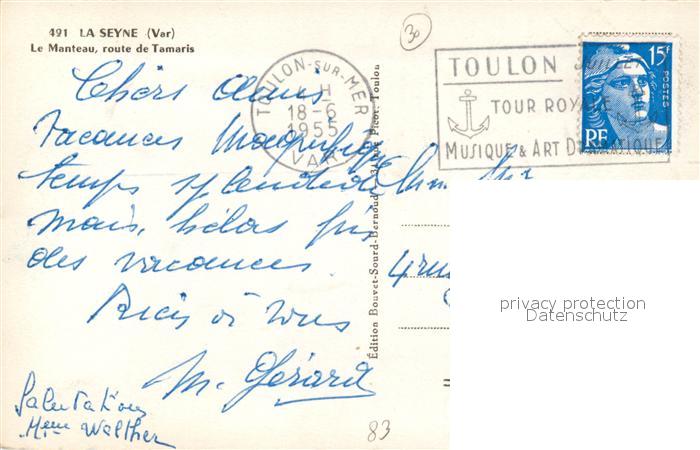 491 LA SEYNE (Var)
Le Manteau, route de Tamaris
30
TOULON-SUR-MER
18-6
1955
VAR
TOULON JUILLET
TOUR ROYALE
MUSIQUE & ART DRAMATIQUE
15F
POSTES
RF
Chers Amis
Vacances Magnifiques
temps splendide
mais, hélas fin
des vacances.
à vous
M. Gérard
Salutations
Walther
4 rue
Édition Bouvet-Sourd-Bernoud Picot, Toulon
83
privacy protection
Datenschutz